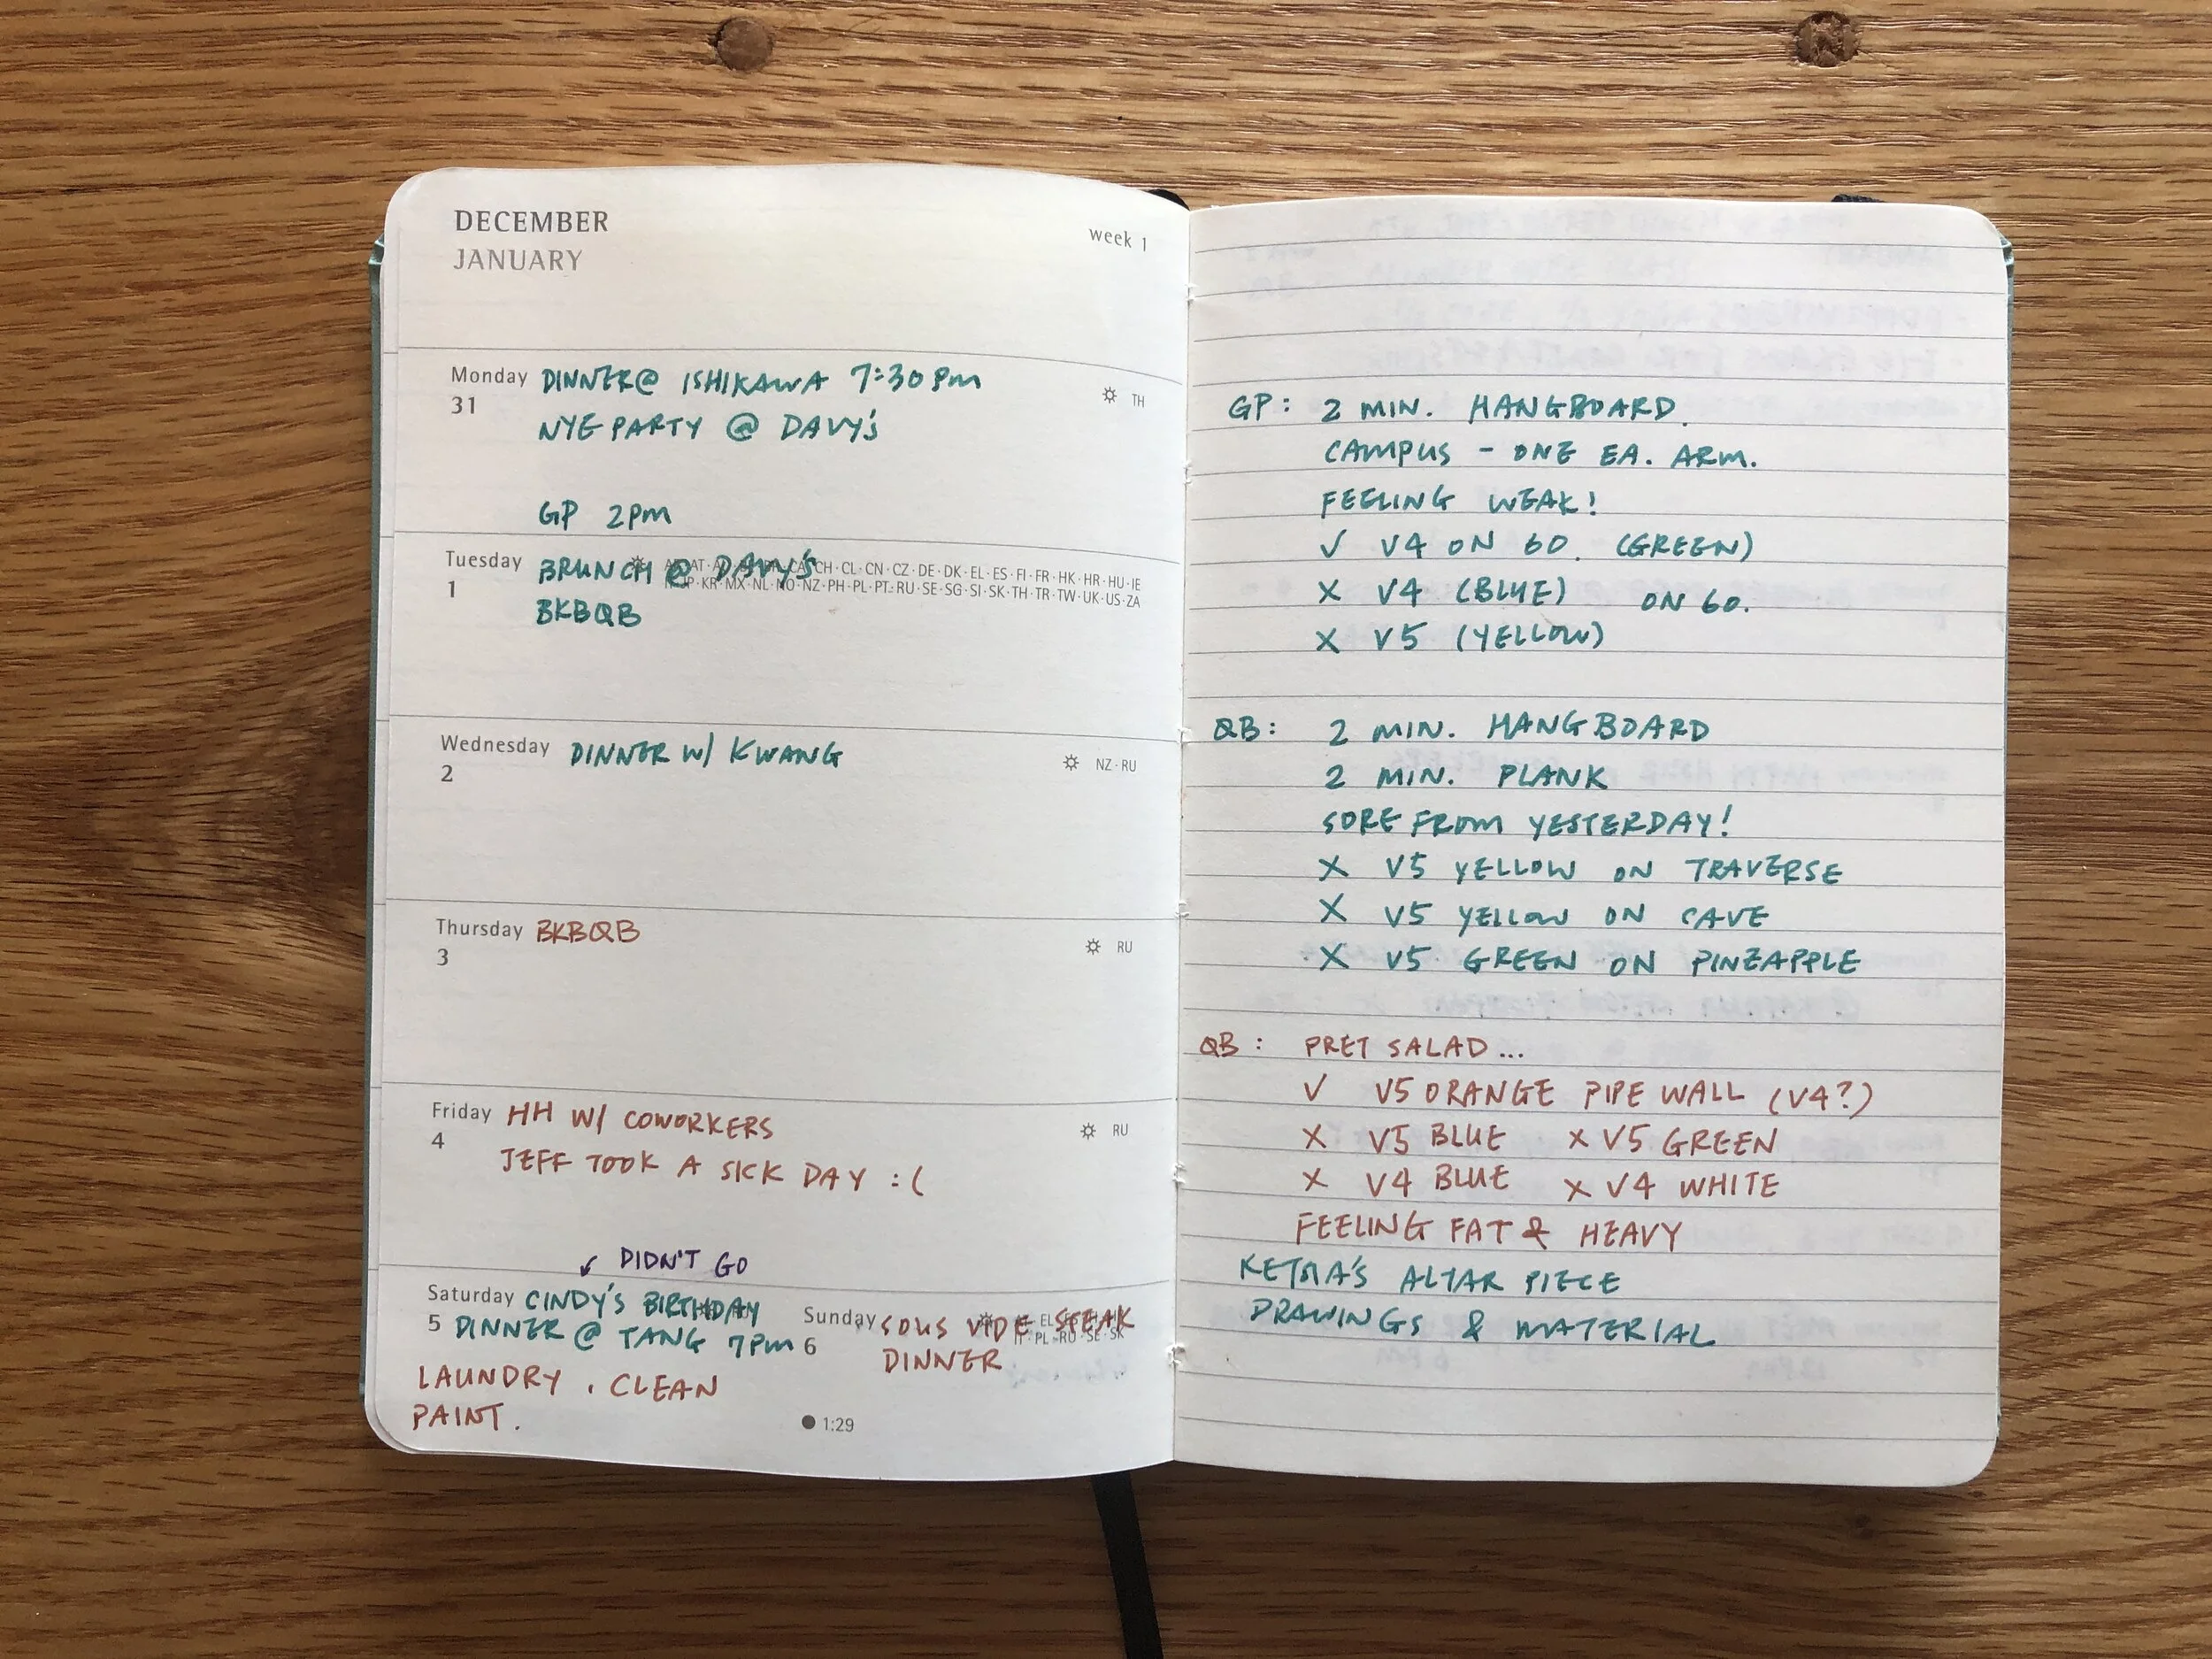 DECEMBER
JANUARY
week 1
Monday DINNER@ ISHIKAWA 7:30PM
31
TH
NYE PARTY @ DAVY'S
GP 2PM
Tuesday BRUNCH @ DAVY'S
1
CH·CL·CN·CZ·DE·DK·EL·ES·FI·FR·HK·HR·HU·IE
KR·MX·NL·NO·NZ·PH·PL·PT·RU·SE·SG·SI·SK·TH·TR·TW·UK·US·ZA
BKBQB
Wednesday DINNER W/ KWANG
2
NZ·RU
Thursday BKBQB
3
RU
Friday HH W/ COWORKERS
4
RU
JEFF TOOK A SICK DAY :(
↙ DIDN'T GO
Saturday CINDY'S BIRTHDAY
5 DINNER @ TANG 7PM
LAUNDRY. CLEAN
PAINT.
Sunday SOUS VIDE STEAK
6 DINNER
PL·RU·SE·SK
● 1:29
GP: 2 MIN. HANGBOARD.
CAMPUS - ONE EA. ARM.
FEELING WEAK!
✓ V4 ON 60. (GREEN)
X V4 (BLUE) ON 60.
X V5 (YELLOW)
QB: 2 MIN. HANGBOARD
2 MIN. PLANK
SORE FROM YESTERDAY!
X V5 YELLOW ON TRAVERSE
X V5 YELLOW ON CAVE
X V5 GREEN ON PINEAPPLE
QB: PRET SALAD...
✓ V5 ORANGE PIPE WALL (V4?)
X V5 BLUE X V5 GREEN
X V4 BLUE X V4 WHITE
FEELING FAT & HEAVY
ALTAR PIECE
DRAWINGS & MATERIAL